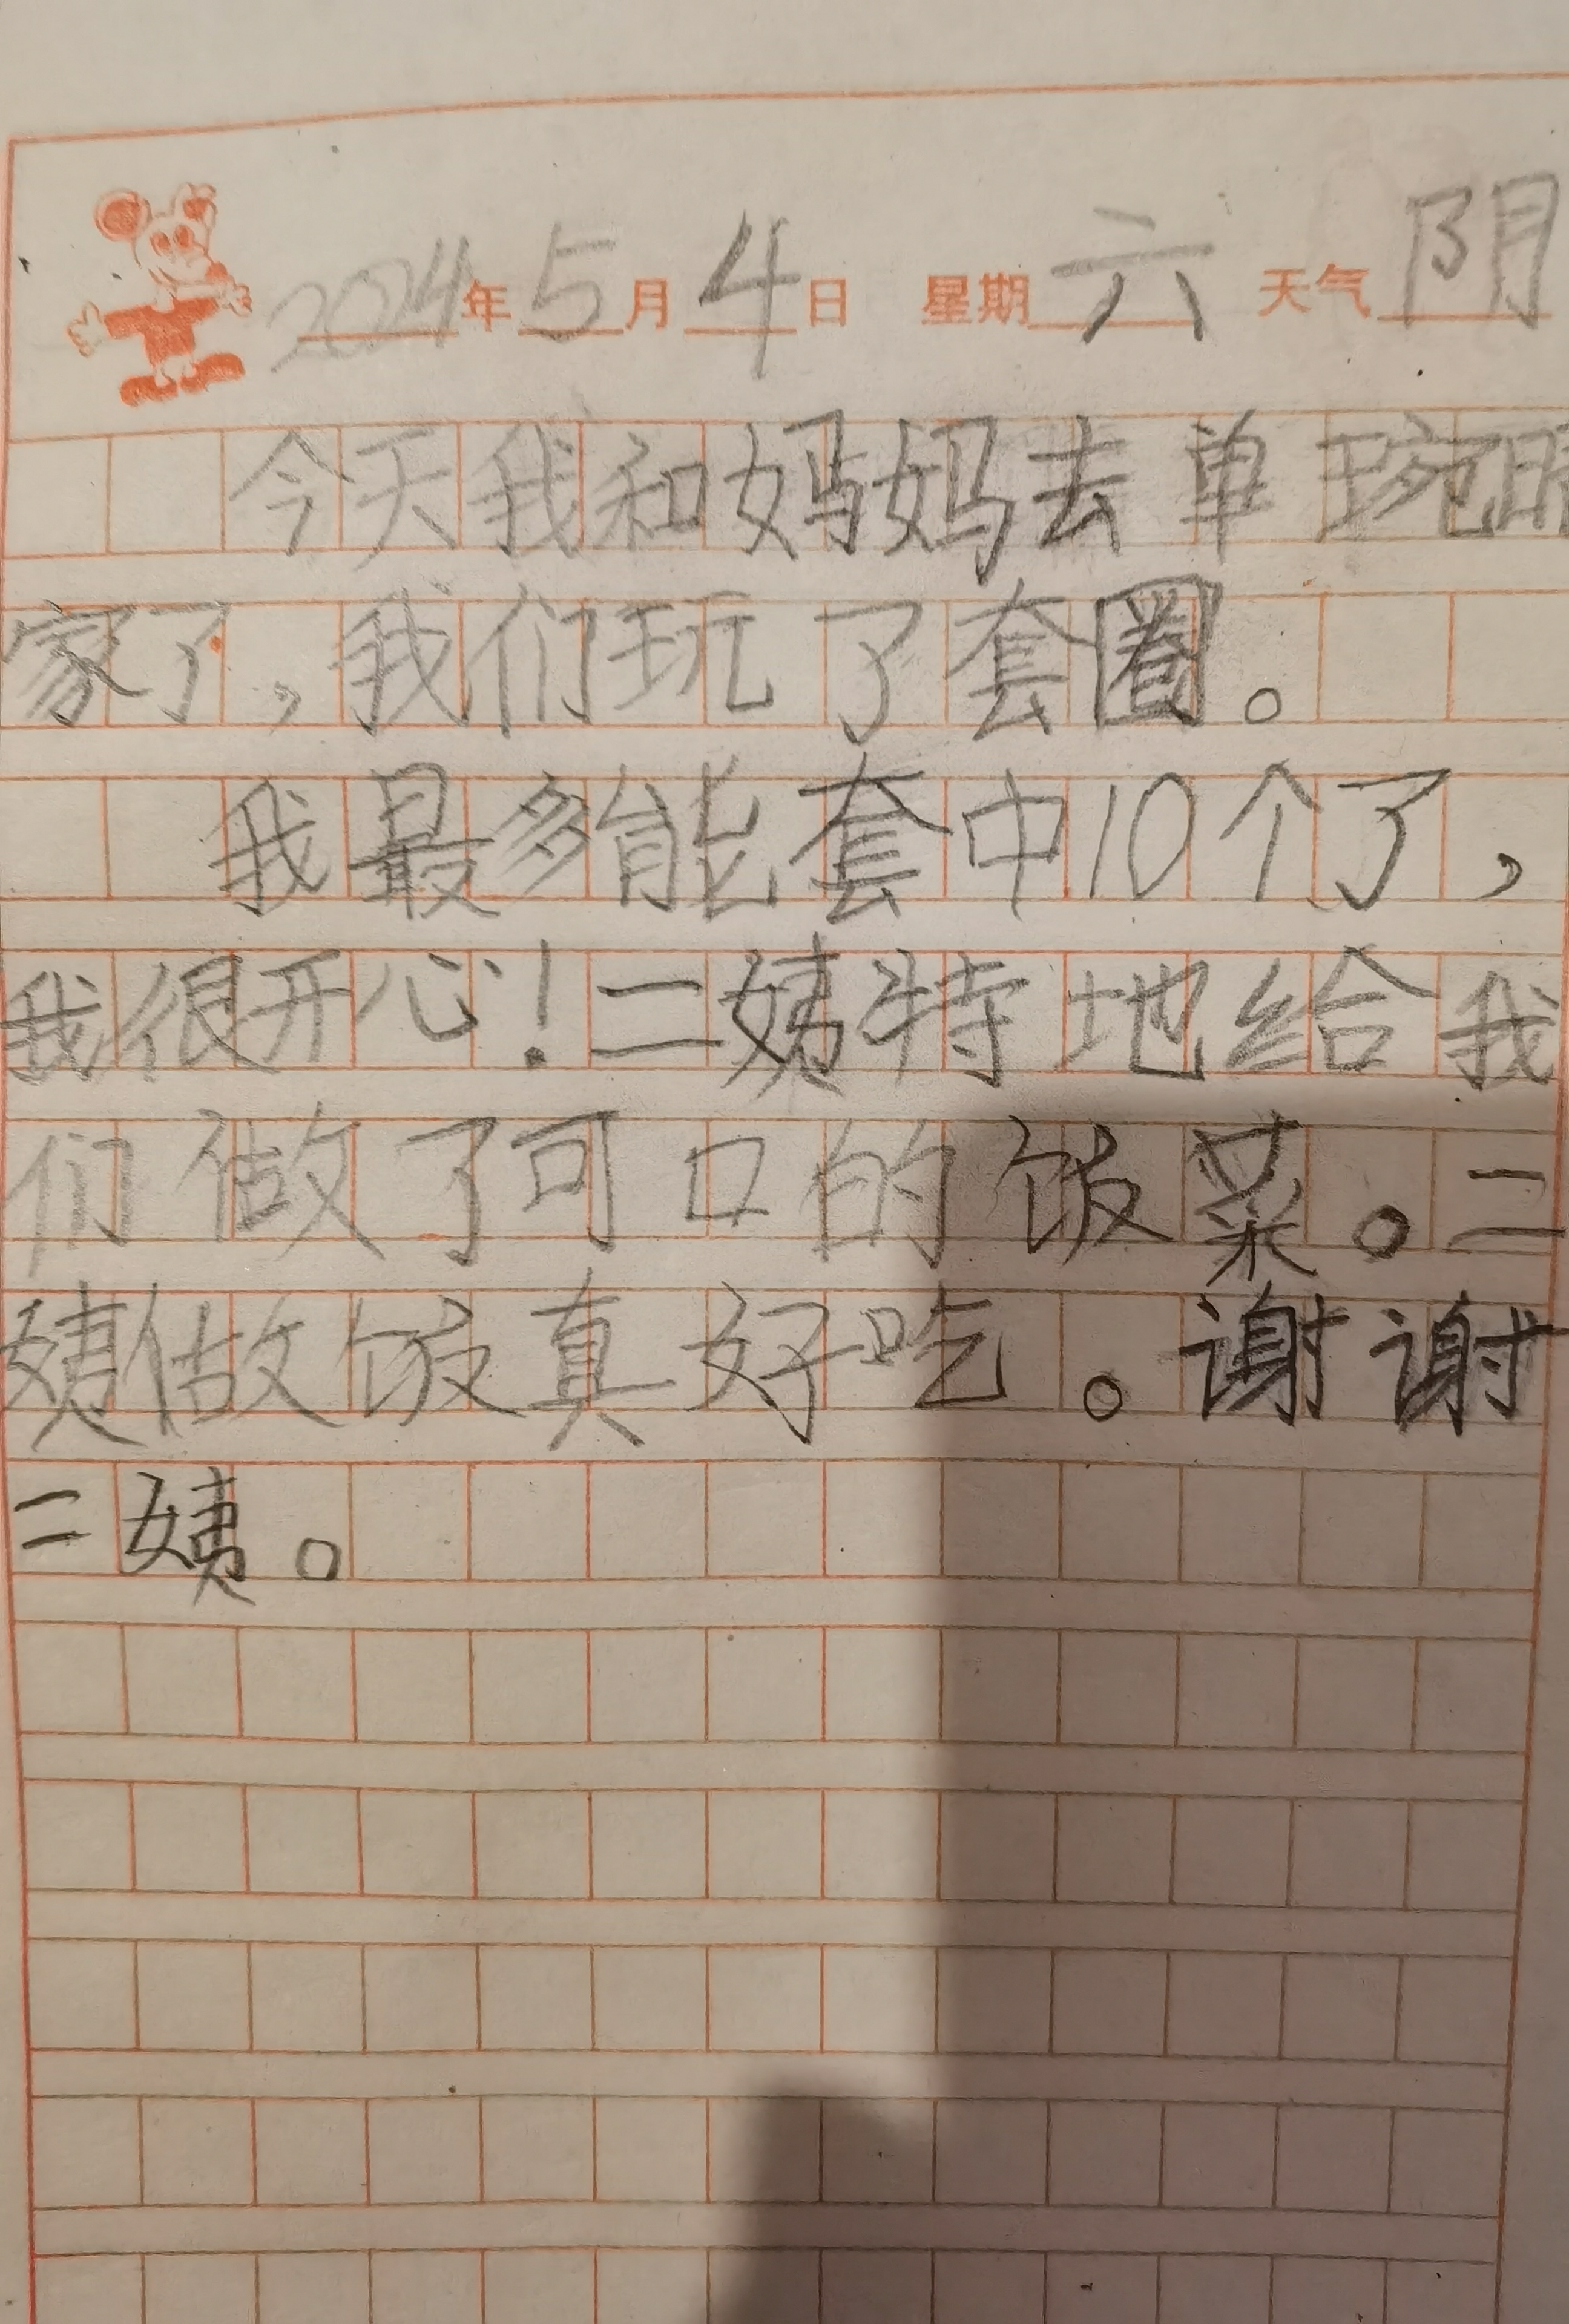 2024年5月4日 星期六 天气阴
今天我和妈妈去单琬晴
家了,我们玩了套圈。
我最多能套中10个了,
我很开心!二姨特地给我
们做了可口的饭菜。二
姨做饭真好吃。谢谢
二姨。